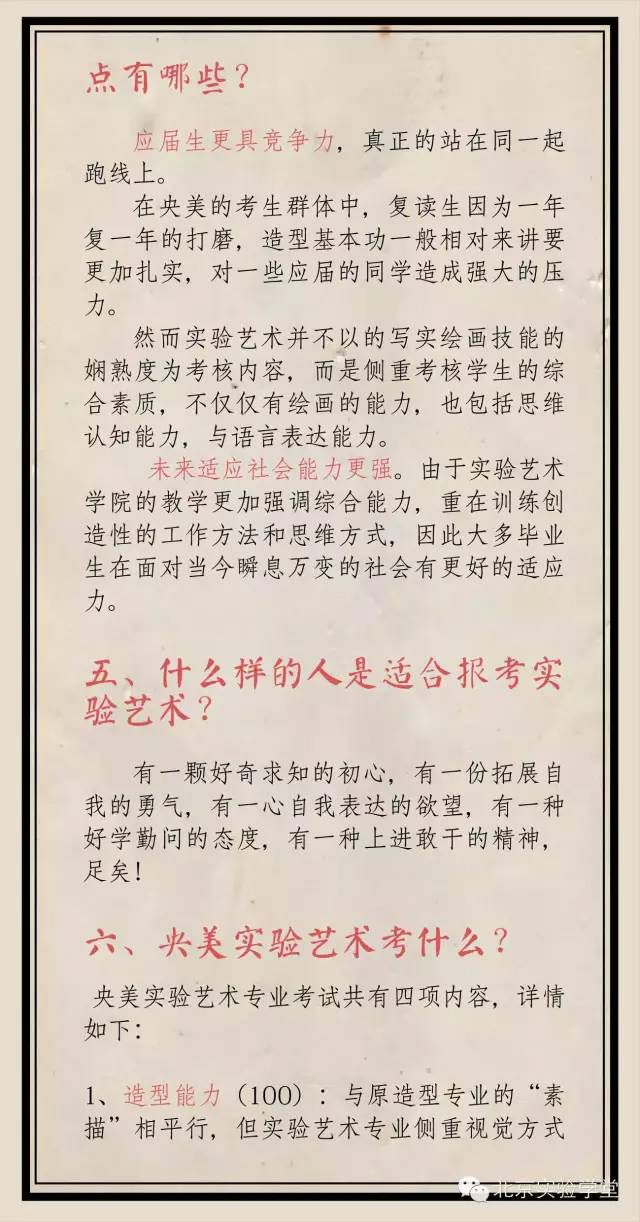 点有哪些？
应届生更具竞争力，真正的站在同一起
跑线上。
在央美的考生群体中，复读生因为一年
复一年的打磨，造型基本功一般相对来讲要
更加扎实，对一些应届的同学造成强大的压
力。
然而实验艺术并不以的写实绘画技能的
娴熟度为考核内容，而是侧重考核学生的综
合素质，不仅仅有绘画的能力，也包括思维
认知能力，与语言表达能力。
未来适应社会能力更强。由于实验艺术
学院的教学更加强调综合能力，重在训练创
造性的工作方法和思维方式，因此大多毕业
生在面对当今瞬息万变的社会有更好的适应
力。
五、什么样的人是适合报考实
验艺术？
有一颗好奇求知的初心，有一份拓展自
我的勇气，有一心自我表达的欲望，有一种
好学勤问的态度，有一种上进敢干的精神，
足矣！
六、央美实验艺术考什么？
央美实验艺术专业考试共有四项内容，详情
如下：
1、造型能力（100）：与原造型专业的“素
描”相平行，但实验艺术专业侧重视觉方式
北京实验学堂